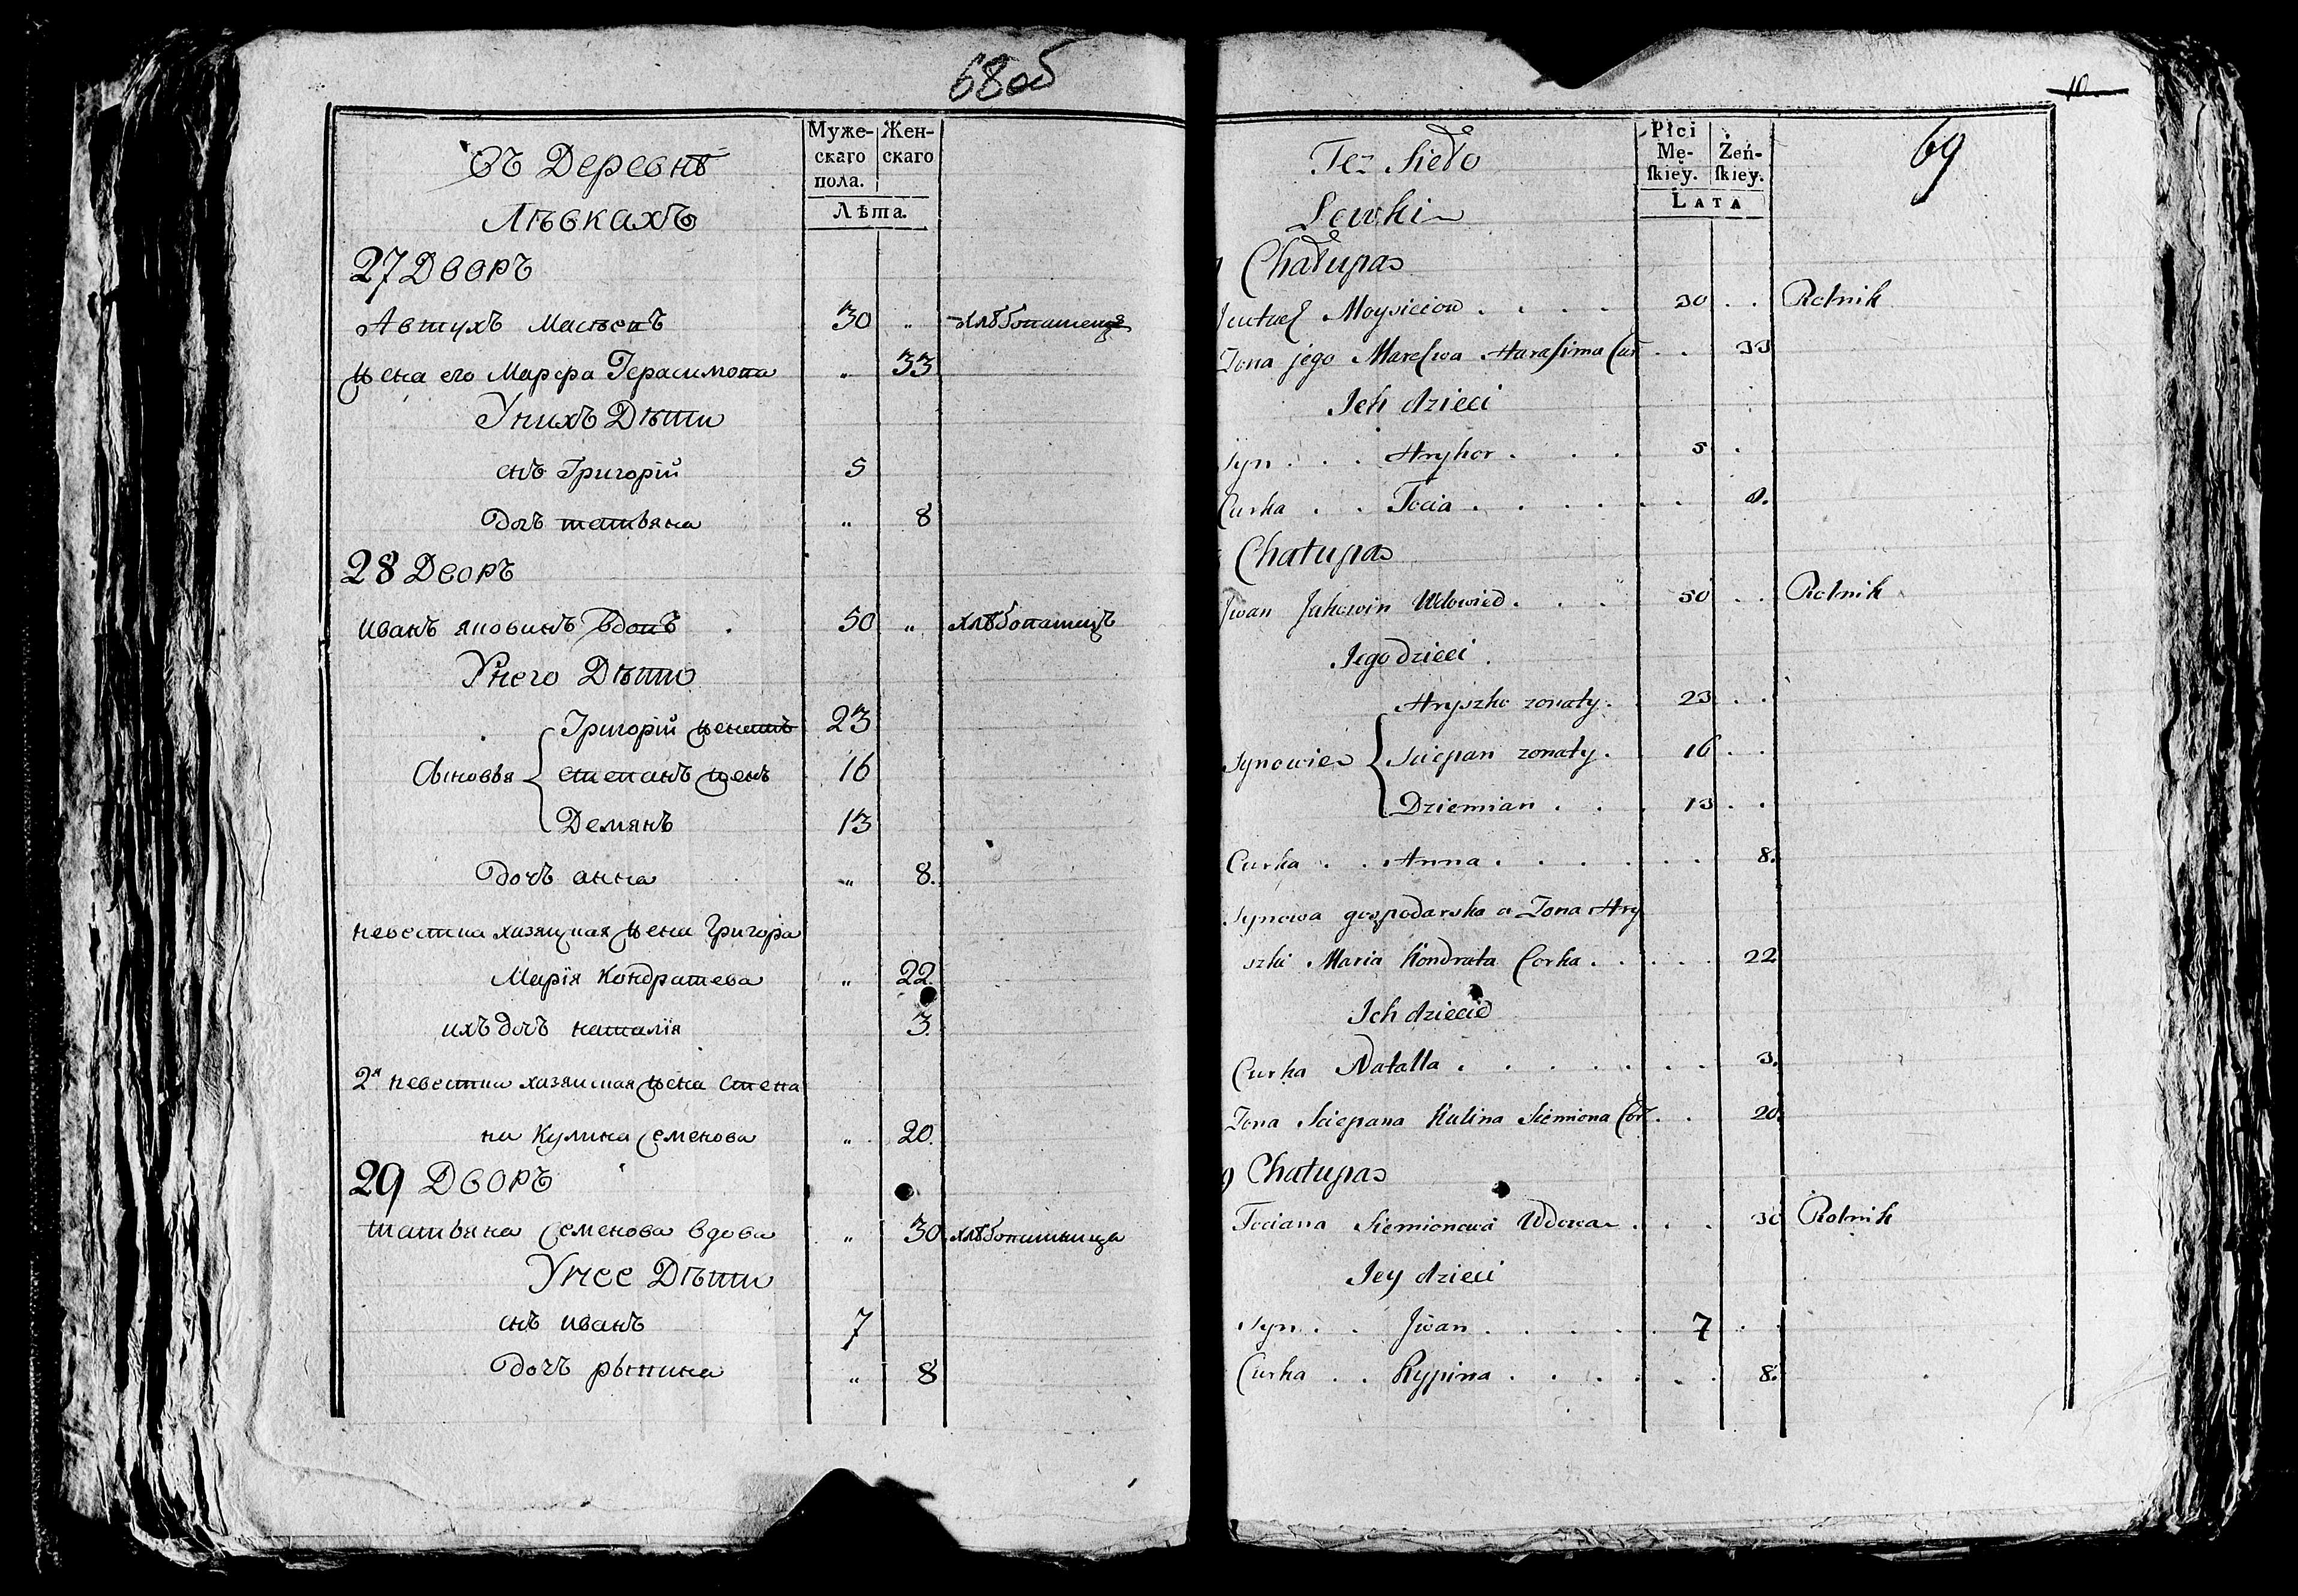 68об
Въ Деревнѣ
Лѣвкахъ
Муже-
скаго
пола.
Жен-
скаго
Лѣта.
27 Дворъ
Автухъ 30 „ хлѣбопашецъ
жена его Марфа Герасимова „ 33
У нихъ Дѣти
снъ Григорій 5
дочь татьяна „ 8
28 Дворъ
иванъ яковинъ вдовъ 50 „ хлѣбопашецъ
У него Дѣти
Григорій женатъ 23
Сыновья степанъ жен 16
Демянъ 13
дочь анна „ 8.
невестка жена Григорія
Марія Кондратева „ 22.
ихъ дочь наталія 3.
2я невестка жена Степа
на Кулина Семенова „ 20.
29 Дворъ
татьяна Семенова вдова „ 30 хлѣбопашница
У нее Дѣти
снъ иванъ 7
дочь рыпина „ 8
10
69
Też Sieło
Lewki
Płci
Mę-
skiey.
Żeń-
skiey.
LATA
Chałupa
Moysieiow . . . . 30 . . Rolnik
Zona jego Marefwa Harasima Cur . . 33
Ich dzieci
Syn . . . Hryhor . . . 5 .
Curka . . Tocia . . . . . . 8.
Chałupa
Jwan Jakowin Wdowiec . . . 50 . . Rolnik
Jego dzieci .
Hryszko zonaty . . 23 . .
Synowie Sciepan zonaty . . 16 . .
Dziemian . . . 13 . .
Curka . . Anna . . . . . . 8.
Synowa gospodarska a Zona Hry
szki Maria Kondrata Corka . . . . 22
Ich dzieci
Curka Natalla . . . . . . . 3.
Zona Sciepana Kulina Siemiona Cor . . 20.
9 Chałupa
Tociana Siemionowa Wdowa . . . 30 Rolnik
Jey dzieci
Syn . . Jwan . . . . . 7 . .
Curka . . Rypina . . . . . . 8.